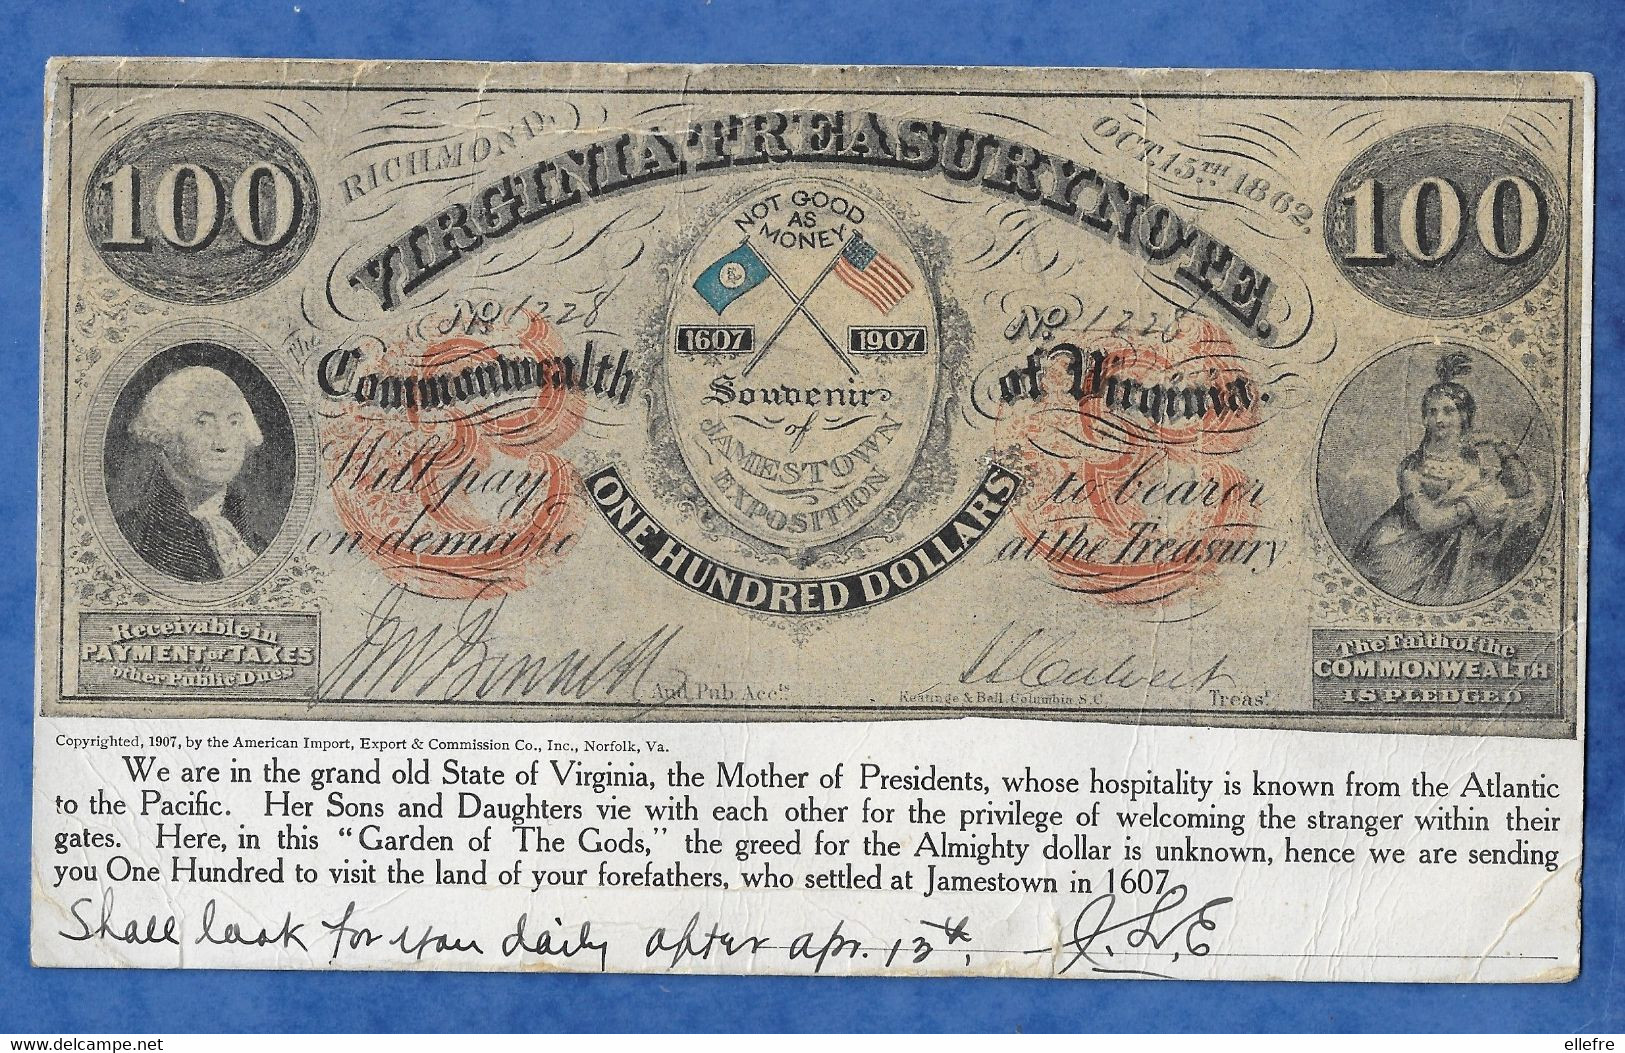 100
RICHMOND,
OCT. 15TH 1862.
100
VIRGINIA TREASURY NOTE.
NOT GOOD
AS
MONEY
No 1228
No 1228
1607 1907
The Commonwealth
of Virginia.
Souvenir
of
JAMESTOWN
EXPOSITION
Will pay
to bearer
on demand
at the Treasury
ONE HUNDRED DOLLARS
Receivable in
PAYMENT OF TAXES
AND
Other Public Dues
The Faith of the
COMMONWEALTH
IS PLEDGED
J M Bennett
Aud. Pub. Accts
Keatinge & Ball, Columbia S.C.
Treasr
Copyrighted, 1907, by the American Import, Export & Commission Co., Inc., Norfolk, Va.
We are in the grand old State of Virginia, the Mother of Presidents, whose hospitality is known from the Atlantic
to the Pacific. Her Sons and Daughters vie with each other for the privilege of welcoming the stranger within their
gates. Here, in this "Garden of The Gods," the greed for the Almighty dollar is unknown, hence we are sending
you One Hundred to visit the land of your forefathers, who settled at Jamestown in 1607.
Shall look for you daily after apr. 15th,
delcampe.net
ellefre